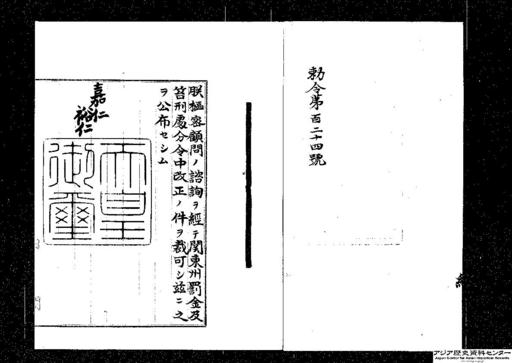 勅令第百二十四號
朕樞密顧問ノ諮詢ヲ經テ関東州罰金及
笞刑處分令中改正ノ件ヲ裁可シ茲ニ之
ヲ公布セシム
嘉仁
裕仁
天皇
御璽
アジア歴史資料センター
Japan Center for Asian Historical Records